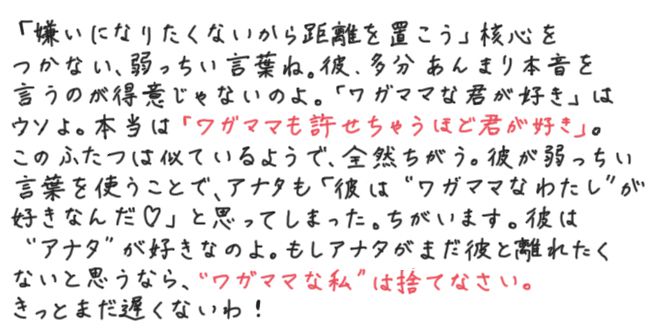 「嫌いになりたくないから距離を置こう」核心を
つかない、弱っちい言葉ね。彼、多分あんまり本音を
言うのが得意じゃないのよ。「ワガママな君が好き」は
ウソよ。本当は「ワガママも許せちゃうほど君が好き」。
このふたつは似ているようで、全然ちがう。彼が弱っちい
言葉を使うことで、アナタも「彼は“ワガママなわたし”が
好きなんだ♡」と思ってしまった。ちがいます。彼は
“アナタ”が好きなのよ。もしアナタがまだ彼と離れたく
ないと思うなら、“ワガママな私”は捨てなさい。
きっとまだ遅くないわ！